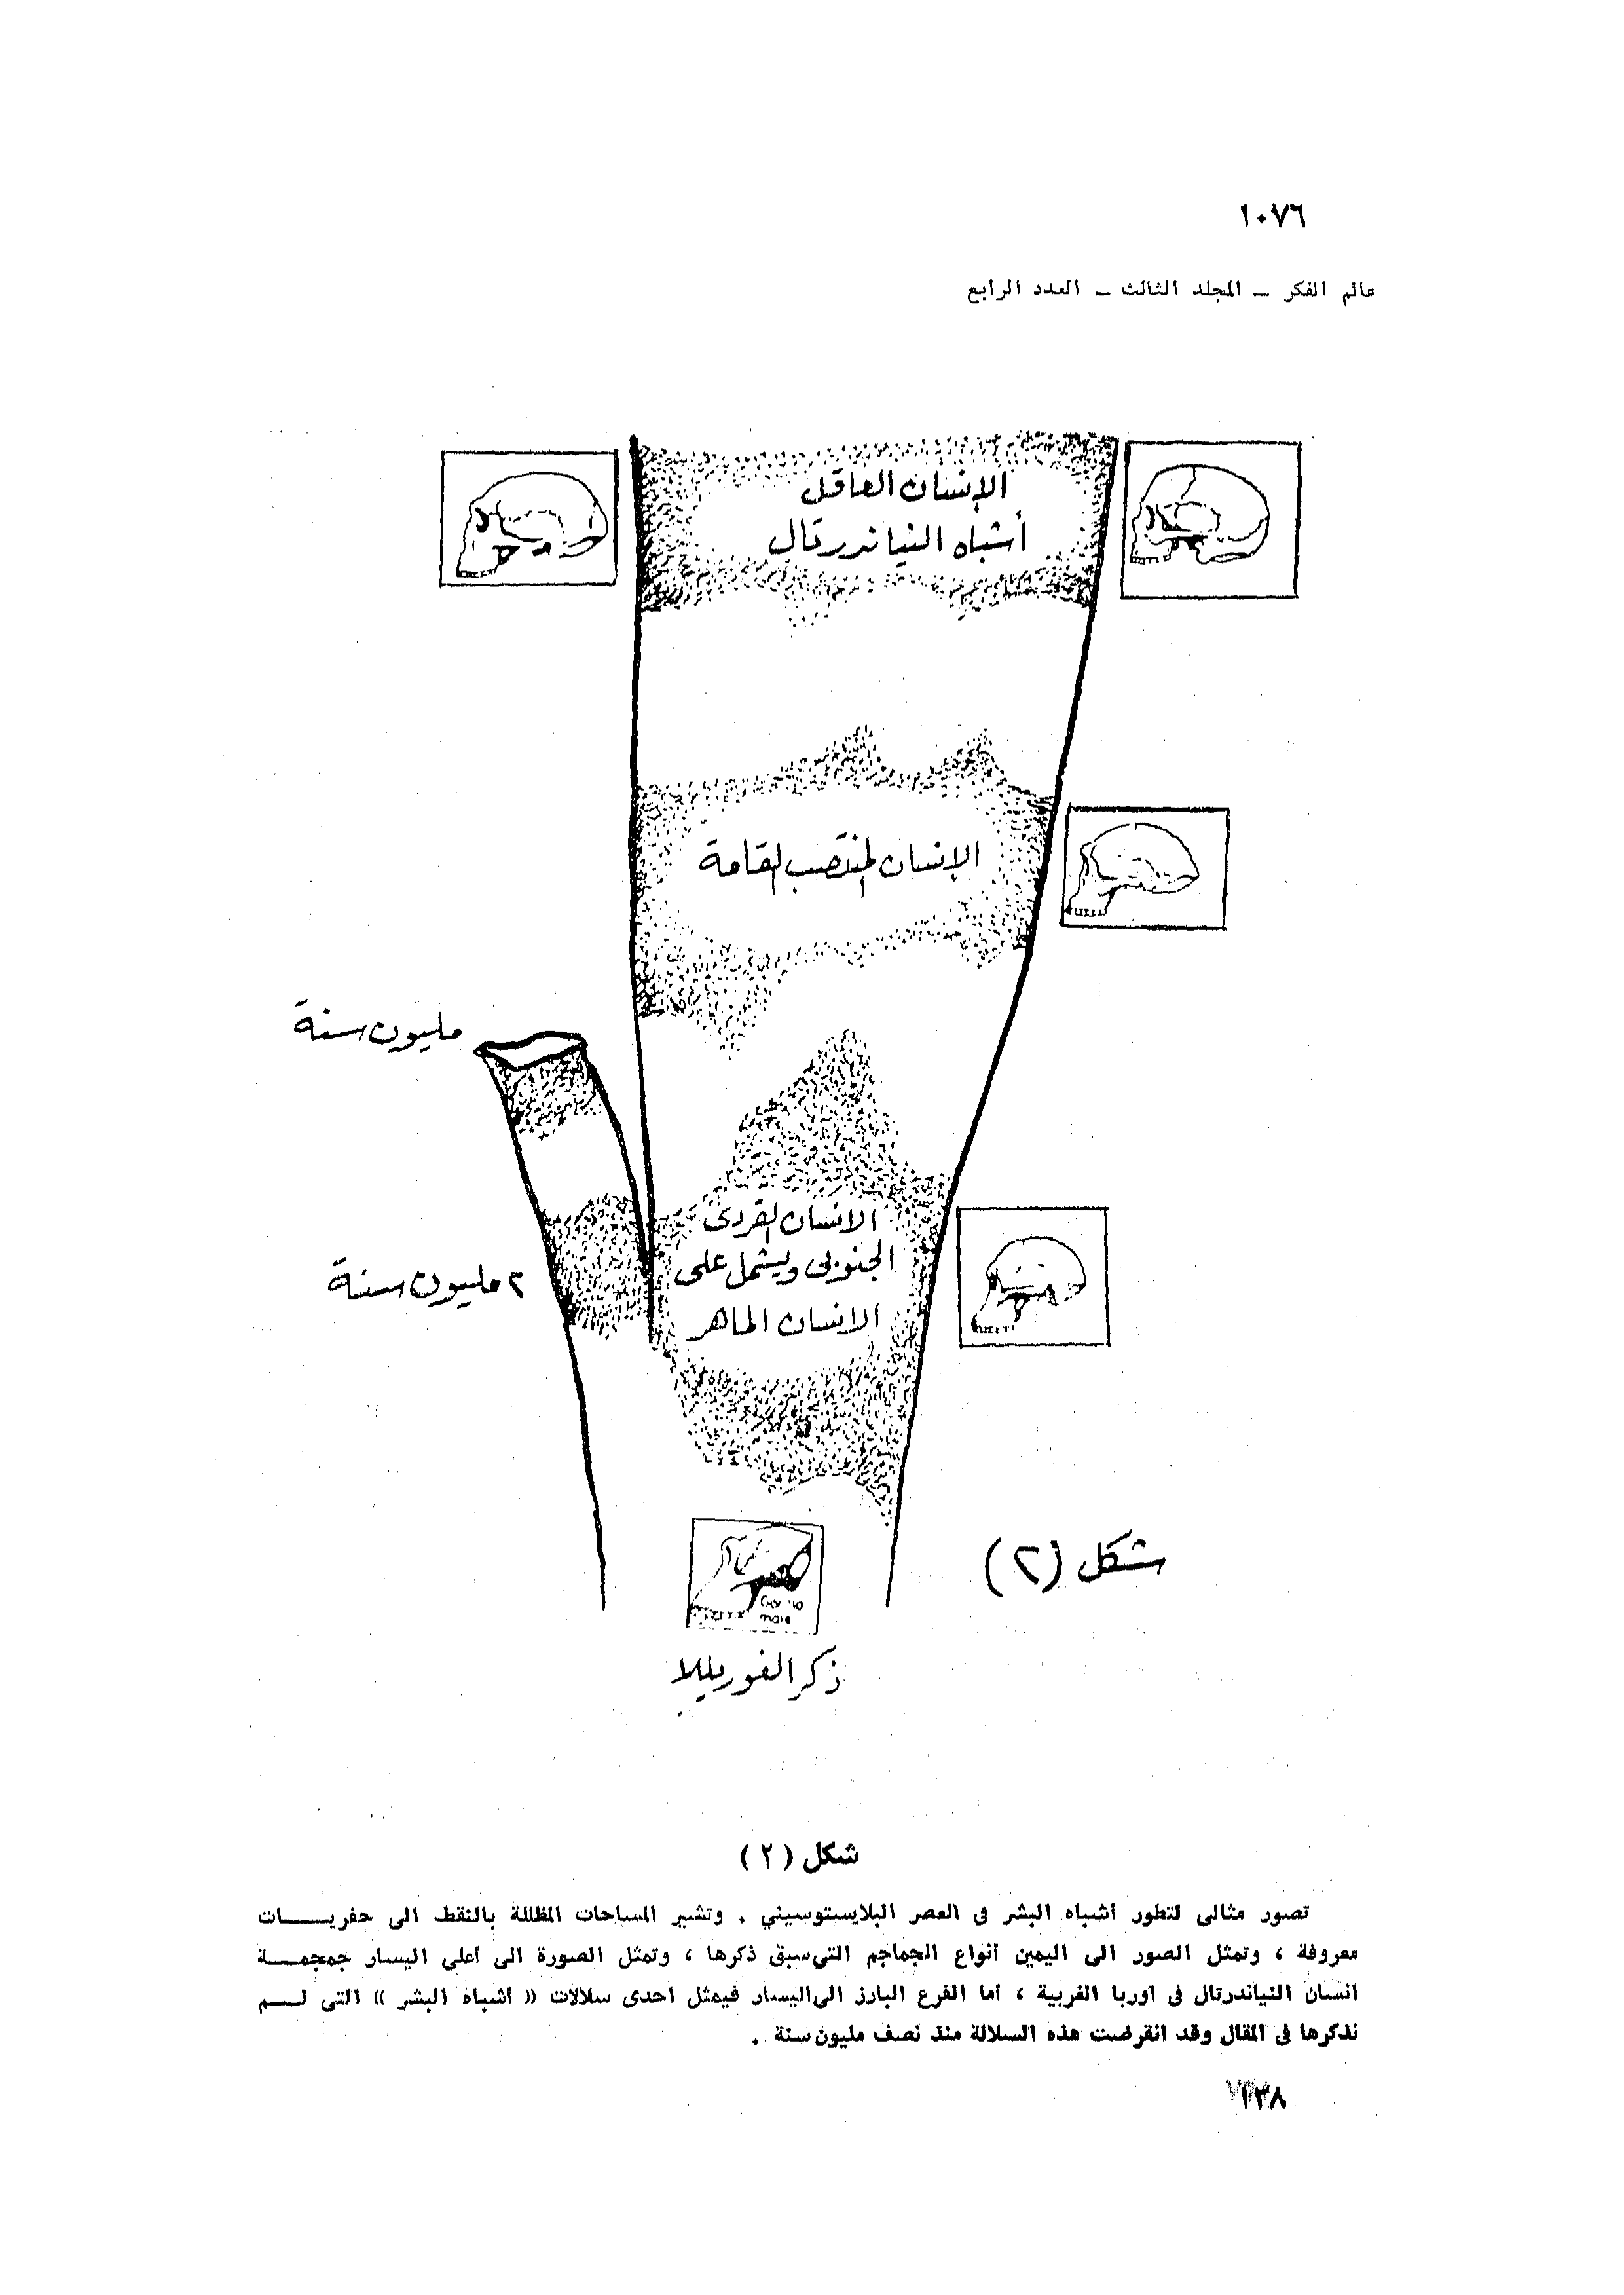 ١٠٧٦
عالم الفكر ــ المجلد الثالث ــ العدد الرابع
الإنسان العاقل
أشباه النياندرتال
الإنسان المنتصب القامة
مليون سنة
الانسان القردى
الجنوبى ويشمل على
الانسان الماهر
٢ مليون سنة
شكل (٢)
Gorilla
male
ذكر الغوريللا
شكل ( ٢ )
تصور مثالى لتطور أشباه البشر فى العصر البلايستوسيني . وتشير المساحات المظللة بالنقط الى حفريـــات
معروفة ، وتمثل الصور الى اليمين أنواع الجماجم التي سبق ذكرها ، وتمثل الصورة الى أعلى اليسار جمجمـــة
انسان النياندرتال فى أوربا الغربية ، أما الفرع البارز الى اليسار فيمثل احدى سلالات « أشباه البشر » التى لـــم
نذكرها فى المقال وقد انقرضت هذه السلالة منذ نصف مليون سنة .
١٣٨